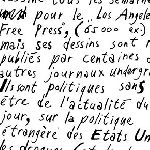 tous les semaines
pour le Los Angeles
Free Press, (65000 ex.)
mais ses dessins sont r
publiés par centaines d
autres journaux undergr
Ils sont politiques sans
être de l'actualité du
jour, sur la politique
étrangère des Etats Un
les drogues